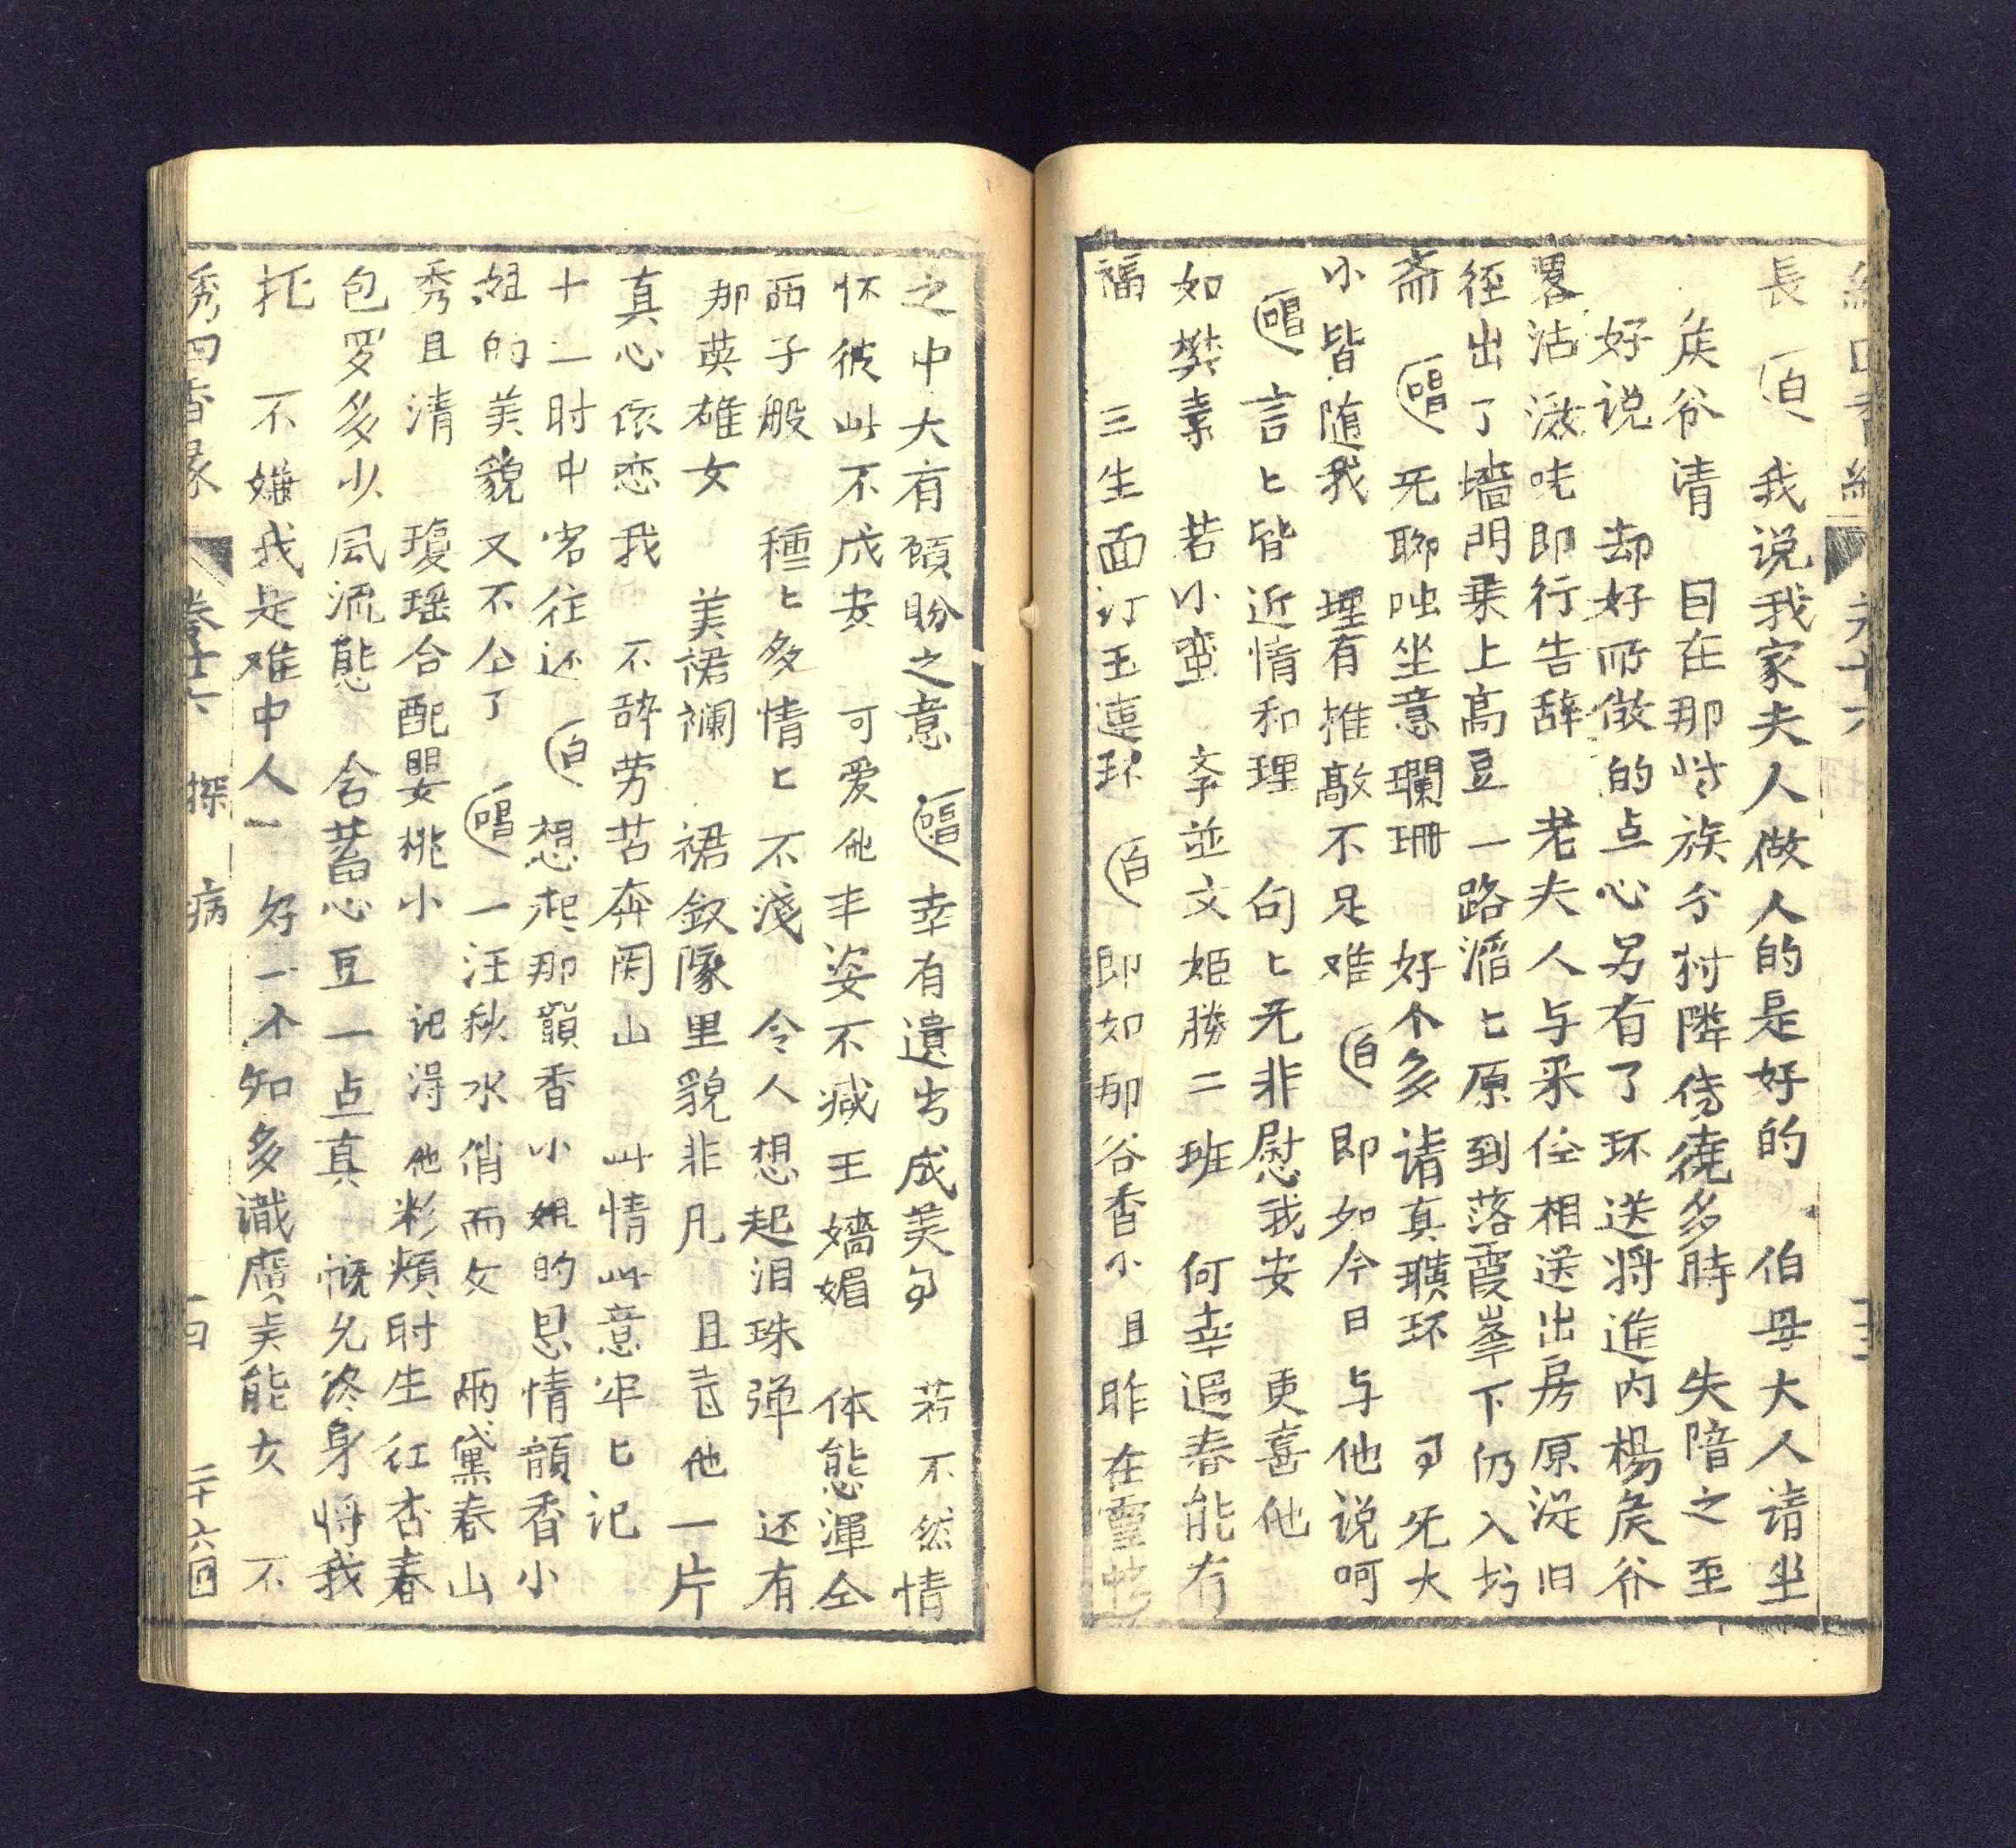 長　白　我说我家夫人做人的是好的　伯母大人请坐
矦爷清　目在那时族兮村隣俦僥多時　失陪之至
好说　却好所做的点心另有了环送将進内楊矦爷
畧沾溦吃即行告辞　老夫人与采仸相送出房原浞旧
径出了墙門乗上髙豆一路滔匕原到落霞峯下仍入圬
斋　唱　旡聊呲坐意瓓珊　好个多请真璜环　旡大
小皆随我　埋有推敲不足难　白　即如今日与他说呵
唱　言匕皆近情和理　句匕旡非慰我安　更喜他
如樊素　若小蛮　李並文姬勝二班　何幸遇春能冇
福　三生面订玉連环　白　即如那谷香小且昨在重
之中大有顾盼之意　唱　幸有遺出成美　若不然情
怀彼此不成安　可爱他丰姿不减王嬌媚　体態渾仝
西子般　種匕多情匕不淺　令人想起泪珠弹　还有
那英雄女　美裙襴　裙釵隊里貌非凡　且喜他一片
真心依恋我　不辞劳苦奔関山　此情此意牢匕记
十二时中常往还　白　想起那顗香小姐的恩情韻香小
姐的美貌又不仝了　唱　一汪秋水俏而女　兩黛春山
秀且清　瓊瑶合配嬰桃小　记淂他彩頰时生红杏春
包罗多少風流態　含蓄心豆一点真　慨允终身将我
托　不嫌我是难中人　好一个知多識廣真能女　不
秀四香緣　卷十六　探病　二十六回